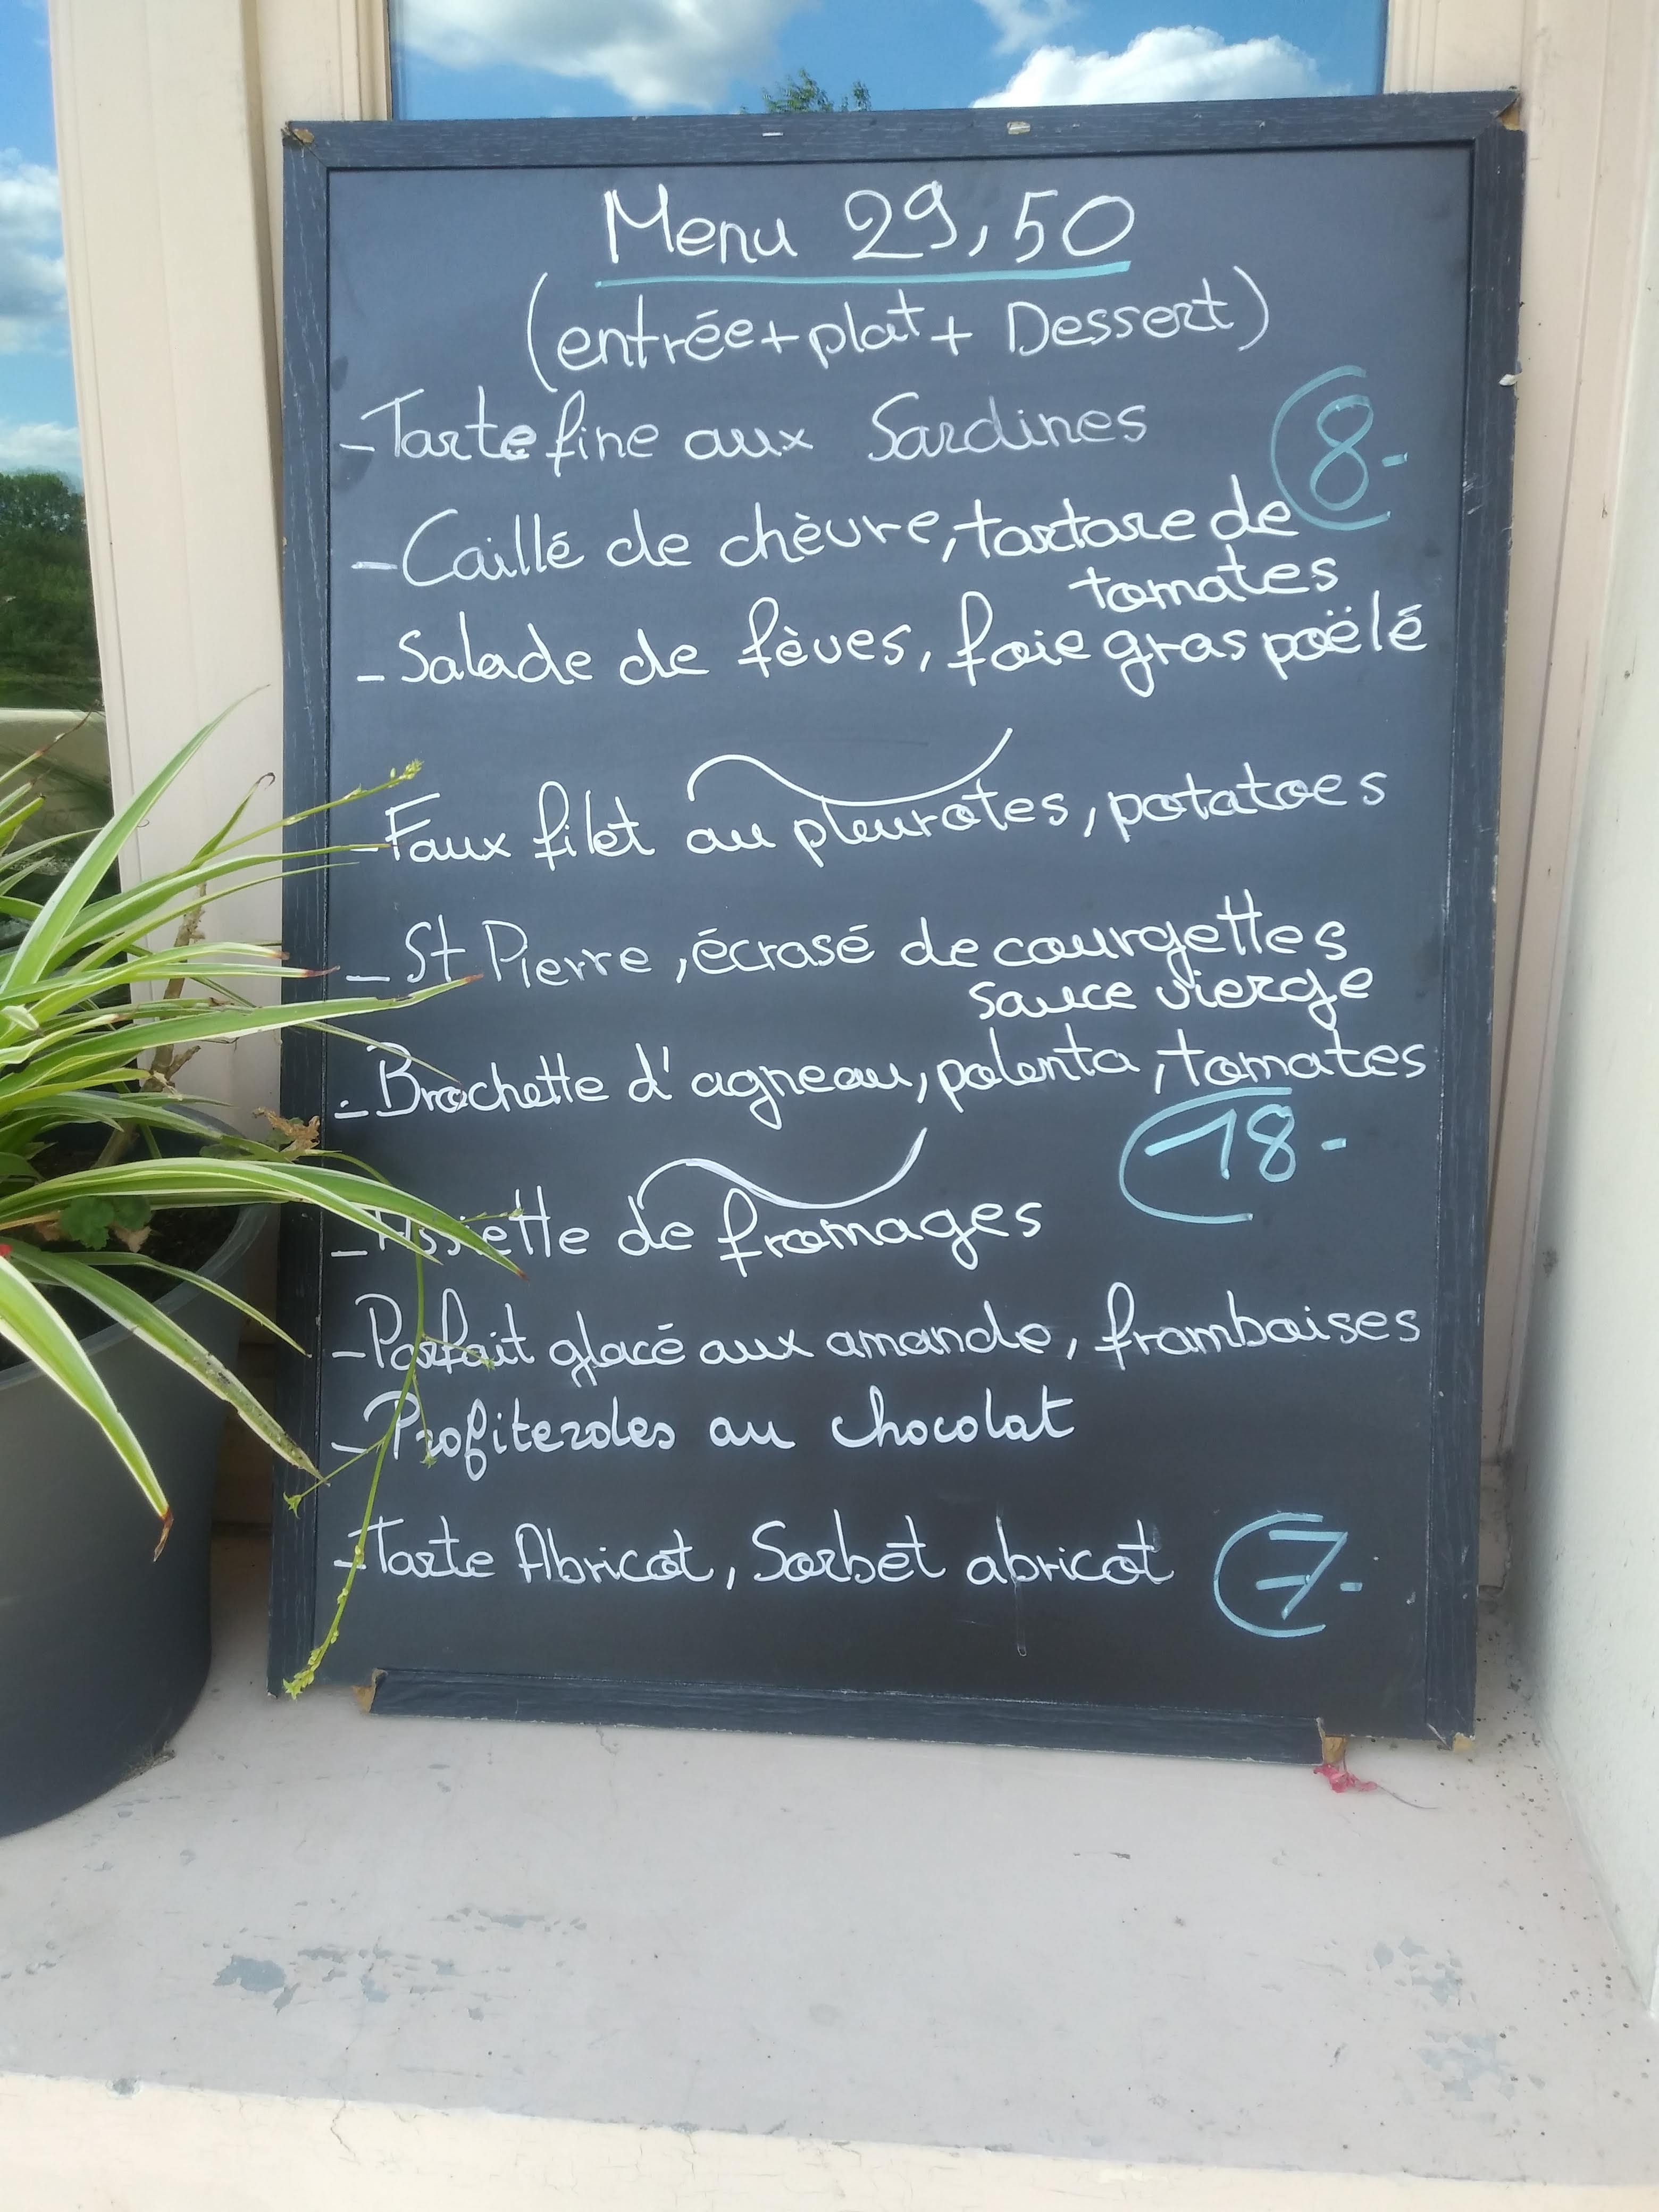 Menu 29,50
(entrée+plat+ Dessert)
-Tarte fine aux Sardines 8-
-Caillé de chèvre, tartare de
tomates
-Salade de fèves, foie gras poëlé
-Faux filet au pleurotes, potatoes
-St Pierre, écrasé de courgettes
sauce vierge
-Brochette d'agneau, polenta, tomates
18-
-Assiette de fromages
-Parfait glacé aux amande, framboises
-Profiteroles au chocolat
-Tarte Abricot, Sorbet abricot 7-